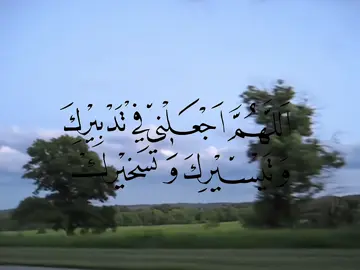 اَللّٰهُمَّ اجْعَلْنِيْ فِيْ تَدْبِيْرِكَ
وَتَيْسِيْرِكَ وَتَسْخِيْرِكَ